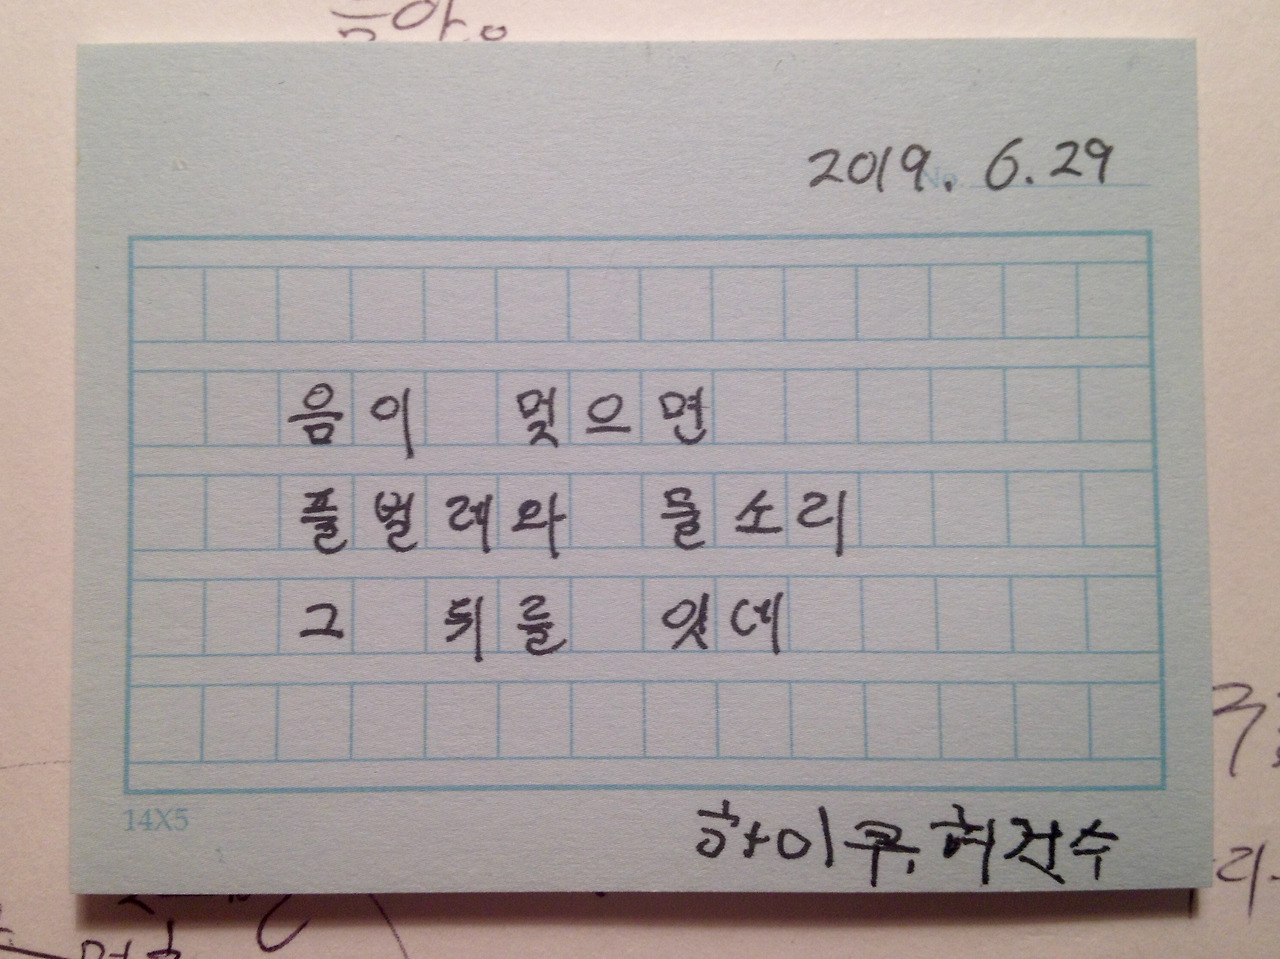 음아。
2019. 6. 29
No.
음이 멎으면
풀벌레와 들소리
그 뒤를 잇데
14X5
하이쿠, 허건수